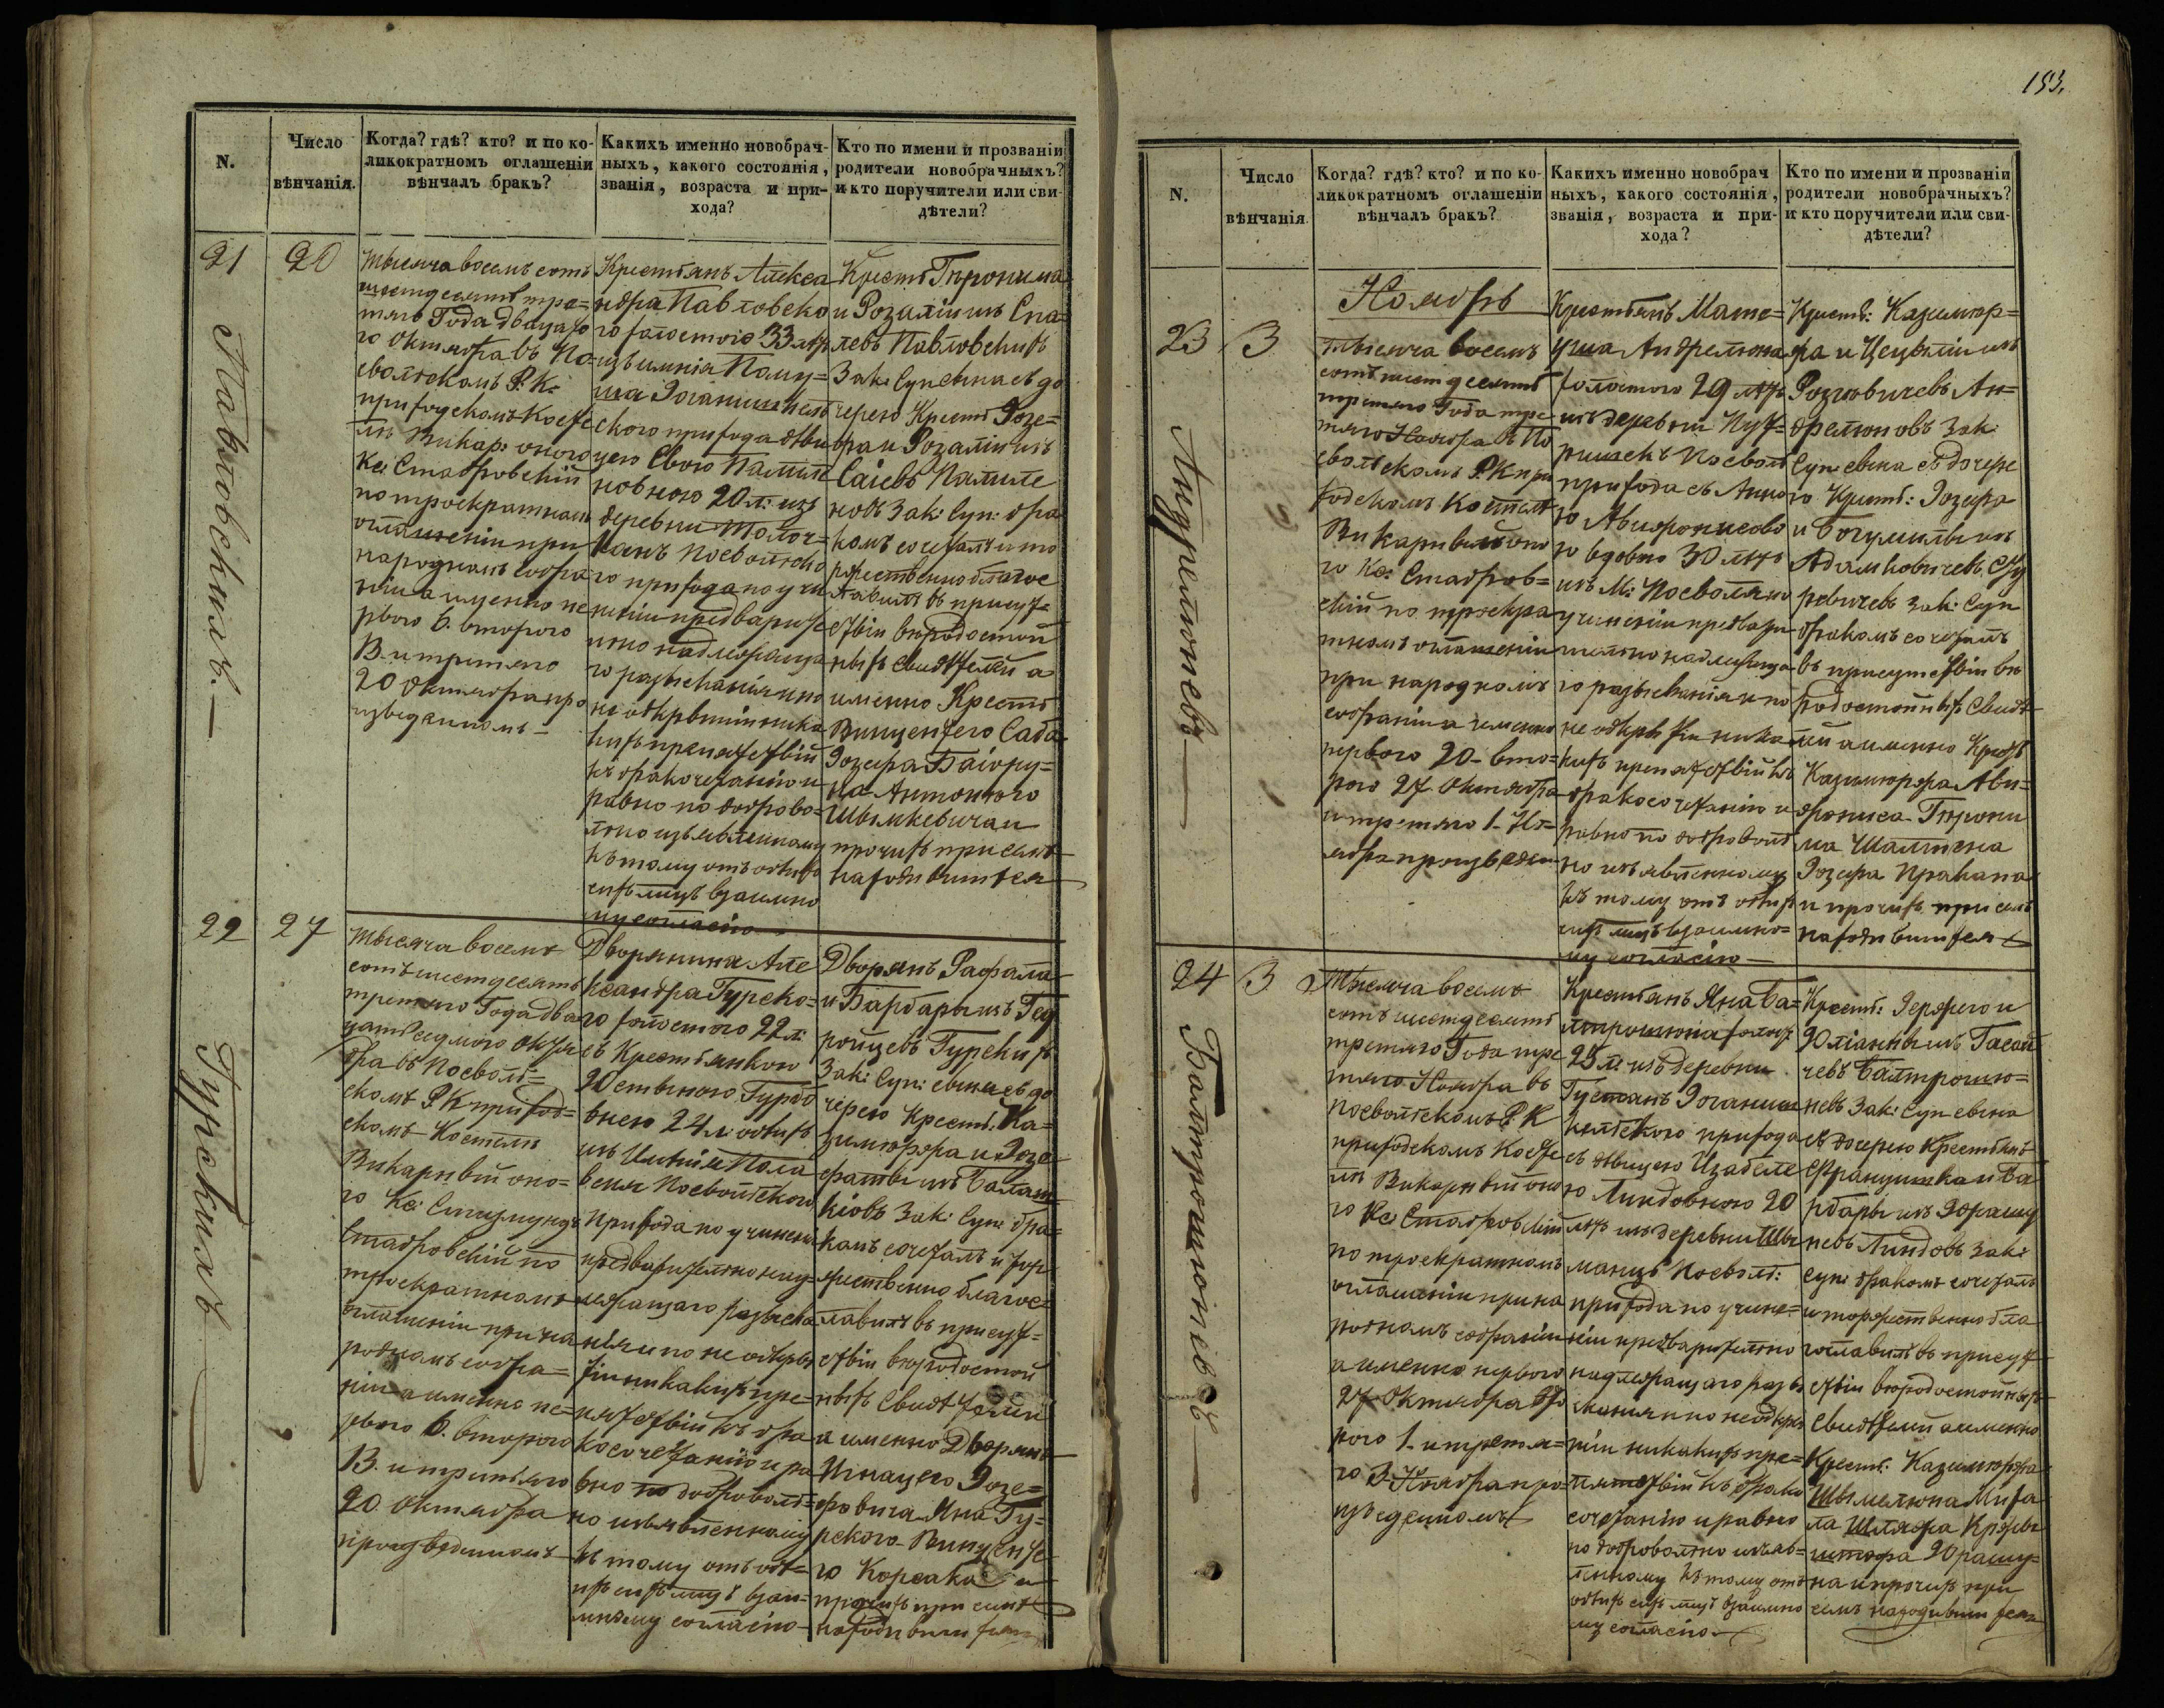 153.
N.
Число
вѣнчанія.
Когда? гдѣ? кто? и по ко-
ликократномъ оглашеніи
вѣнчалъ бракъ?
Какихъ именно новобрач-
ныхъ, какого состоянія,
званія, возраста и при-
хода?
Кто по имени и прозванію
родители новобрачныхъ?
и кто поручители или сви-
дѣтели?
21
20
Павловскихъ.
Тысяча восемь сотъ
шестдесятъ тре=
тяго Года двадцато
го Октября въ По=
свольскомъ Р. К.
приходскомъ Косте
лѣ Викар: оного
Кс: Стабровскій
по троекратномъ
оглашеніи при
народномъ собра
ніи а именно пе
рвого 6. второго
13. и третяго
20 Октября про
изведенномъ
Крестьянъ Алекса
ндра Павловска
го холостого 33 лѣтъ
изъ имнія Пому=
ша Іоганишкель
скаго прихода дѣви
цею Евою Памиле
новною 20 л: изъ
деревни
Посвольска
го прихода по учи
неніи предварите
льно надлежаща
го розысканія и по
не открытіи ника
кихъ препятствій
къ бракочетанію и
равно по доброво=
льно изъявленному
къ тому отъ обѣихъ
сихъ лицъ взаимно
му согласію
Крест: Іеронима
и Розаліи изъ Спа
левъ Павловскихъ
Зак: Суп: сына съ до
черью Крест: Юзе=
фа и Розаліи изъ
Саіевъ Памиле
новъ Зак: Суп: бра
комъ сочеталъ и то
ржественно благос
лавилъ въ присут=
ствіи вѣродостой
ныхъ Свидѣтелей а
именно Крест:
Винцентего Саба
Юзефа Баіору=
на Антонего
Шымкевича и
прочихъ при семъ
находившихся
22
27
Гурскихъ
Тысяча восемь
сотъ шестдесятъ
третяго Года два
дцать седмого Октя
бря въ Посволь=
скомъ Р. К. приход=
скомъ Костелѣ
Викарнвій оно=
го Кс: Сигизмундъ
Стабровскій по
троекратномъ
оглашеніи при на
родномъ собра=
ніи а именно пе=
рвого 6. второго
13. и третьяго
20. Октября
произведенномъ
Дворянина Але
ксандра Гурско=
го холостого 22 л:
съ Крестьянкою
Юстыною Гурбо
вною 24 л. обѣихъ
изъ Имнія Пола
веня Посвольскаго
Прихода по учинені
предварительно над
лежащаго розыска
нія и по не откры
тіи никакихъ пре=
пятствій къ бра
косочетанію и ра
вно по доброволь=
но изъявленному
къ тому отъ обѣ=
ихъ сихъ лицъ взаи=
мному согласію
Дворянъ Рафала
и Барбары изъ Гед
ройцевъ Гурскихъ
Зак: Суп: сына съ до
черью Крест: Ка=
зимержа и Юзе
фаты изъ
Зак: Суп: бра=
комъ сочеталъ и тор
жественно благос=
лавилъ въ присут=
ствіи вѣродостой
ныхъ Свидѣтелей
а именно Дворянъ
Игнацего Юзе=
фовича Яна Гу=
рского Винценте
го Корсака и
прочихъ при семъ
находившихся
N.
Число
вѣнчанія.
Когда? гдѣ? кто? и по ко-
ликократномъ оглашеніи
вѣнчалъ бракъ?
Какихъ именно новобрач
ныхъ, какого состоянія,
званія, возраста и при-
хода?
Кто по имени и прозванію
родители новобрачныхъ?
и кто поручители или сви-
дѣтели?
Ноябрь
23
3
Андрелюновъ
Тысяча восемь
сотъ шестдесятъ
третяго Года тре
тяго Ноября въ По
свольскомъ Р. К. при
ходскомъ Костелѣ
Викарнвій оно
го Кс: Стабров=
скій по троекра
тномъ оглашеніи
при народномъ
собраніи а именно
первого 20. вто=
рого 27 Октября
и третяго 1. Но=
ября произведен
Крестьянъ Мате=
уша Андрелюна
холостого 29 лѣтъ
изъ деревни
Посволь
прихода съ Анно
ю Авижонисово
ю вдовою 30 лѣтъ
изъ М: Посволя по
учиненіи предвари
тельно надлежаща
го розысканія и по
не открытіи ника
кихъ препятствій къ
бракосочетанію и
равно по доброволь
но изъявленному
къ тому отъ обѣихъ
сихъ лицъ взаимно=
му согласію
Крест: Казимер=
жа и Цецыліи изъ
Розновичевъ Ан=
дрелюновъ Зак:
Суп: сына съ дочерь
ю Крест: Юзефа
и Богумилы изъ
Адамковичевъ
Зак: Суп
бракомъ сочеталъ
въ присутствіи вѣ
родостойныхъ Свидѣ
лей а именно Крест
Казимержа Ави=
жониса Іерони
ма Шалтена
Юзефа Пракапа
и прочихъ при семъ
находившихся
24
3
Балтрошюновъ
Тысяча восемь
сотъ шестдесятъ
третяго Года тре
тяго Ноября въ
Посвольскомъ Р. К
приходскомъ Косте
лѣ Викарнвій оно
го Кс: Стабровскій
по троекратномъ
оглашеніи при на
родномъ собраніи
а именно первого
27 Октября вто
рого 1. и третя=
го 3 Ноября про=
изведенномъ
Крестьянъ Яна Ба=
лтрошюна холост
25 л: изъ деревни
Густанъ Іоганиш
кельского прихода
съ дѣвицею Изабеле
ю Линдовною 20
лѣтъ изъ деревни Шы
манцъ Посволь:
прихода по учине=
ніи предварительно
надлежащаго розы
сканія и по не откры
тіи никакихъ пре=
пятствій къ брако
сочетанію и равно
по добровольно изъяв=
ленному къ тому отъ
обѣихъ сихъ лицъ взаимно
му согласію
Крест: Іержего и
Юліанны изъ
Балтрошю=
новъ Зак: Суп: сына
съ дочерью Крестьянъ
Францишка и Ба
рбары изъ
Линдовъ Зак:
Суп: бракомъ сочеталъ
и торжественно бла
гославилъ въ присут
ствіи вѣродостойныхъ
Свидѣтелей а именно
Крест: Казимержа
Шымелюна Миха
ла Шляжа Кржы
штофа Юрашу=
на и прочихъ при
семъ находившихся